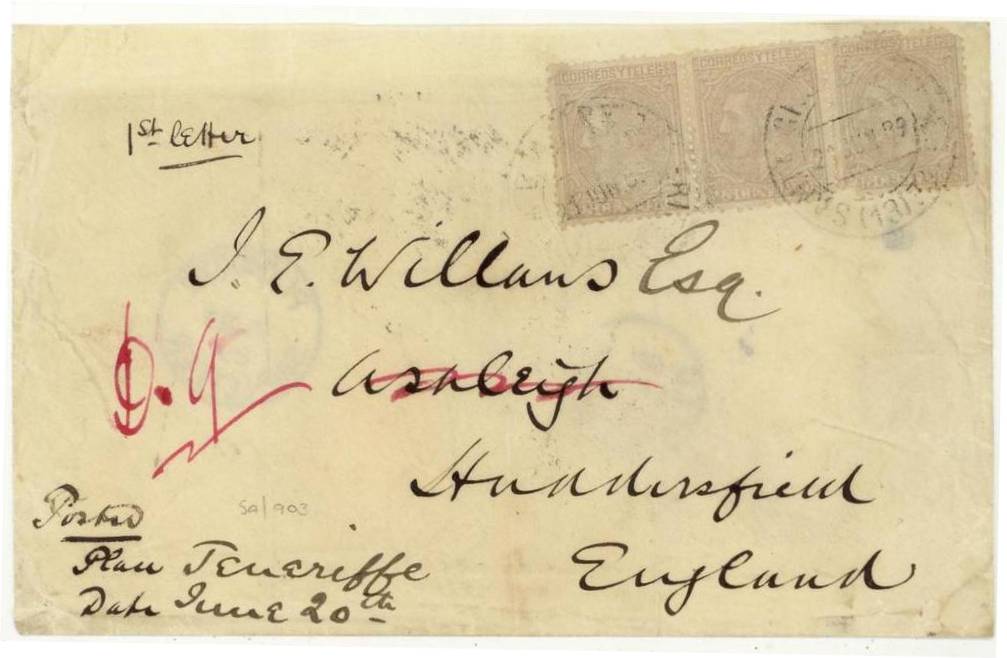 CORREOS Y TELEGS CORREOS Y TELEGS CORREOS Y TELEGS
1st letter
J. E. Willans Esq.
D. 9
Ashleigh
Huddersfield
England
SA/903
Posted
Place Teneriffe
Date June 20th